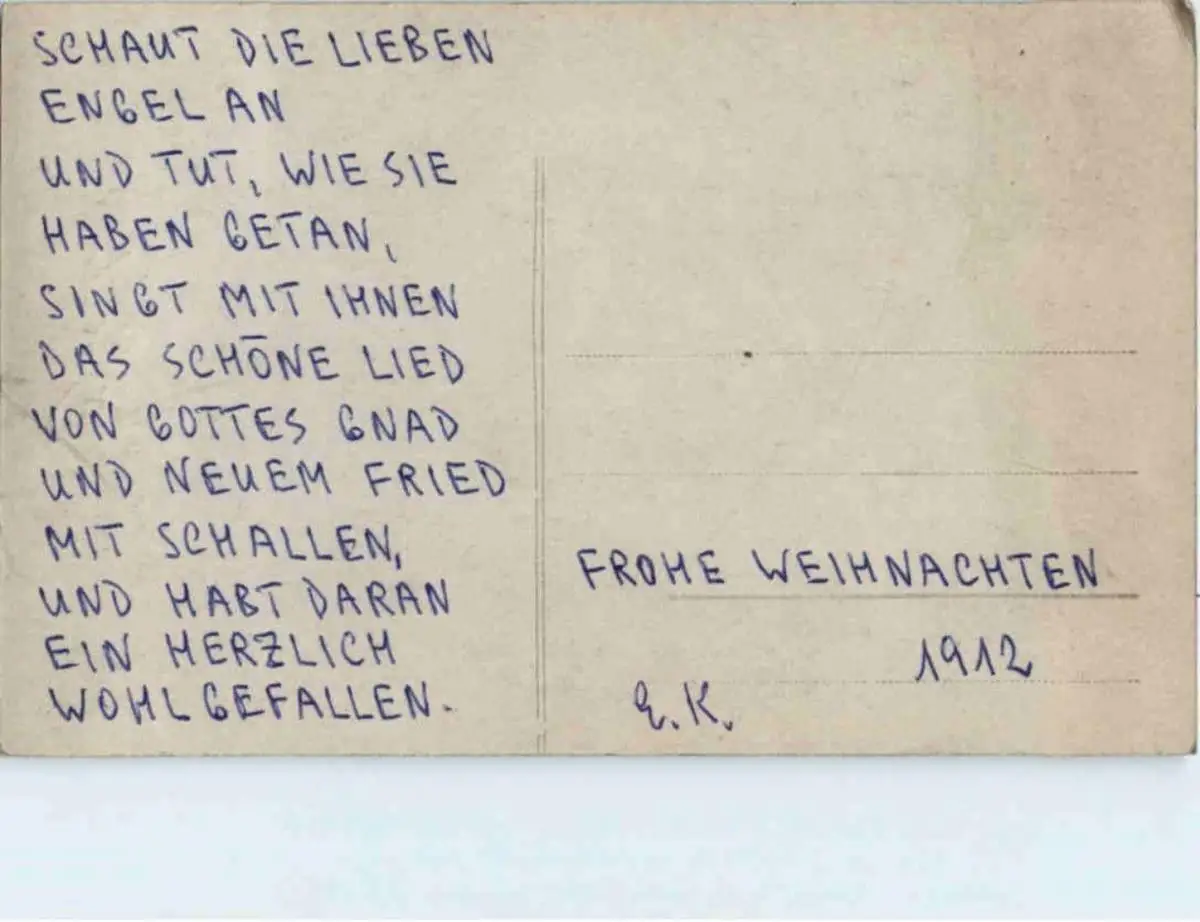 SCHAUT DIE LIEBEN
ENGEL AN
UND TUT, WIE SIE
HABEN GETAN,
SINGT MIT IHNEN
DAS SCHÖNE LIED
VON GOTTES GNAD
UND NEUEM FRIED
MIT SCHALLEN,
UND HABT DARAN
EIN HERZLICH
WOHLGEFALLEN.
FROHE WEIHNACHTEN
1912
E.K.